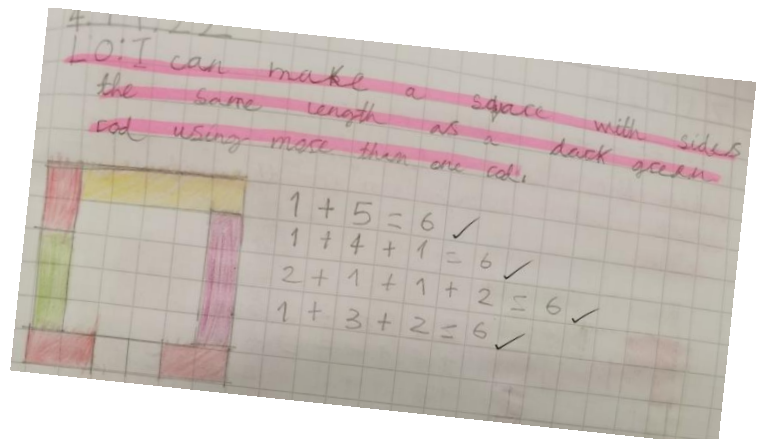 L O: I can make a space with sides
the same length as a dark green
rod using more than one rod.
1 + 5 = 6 ✓
1 + 4 + 1 = 6 ✓
2 + 1 + 1 + 2 = 6 ✓
1 + 3 + 2 = 6 ✓